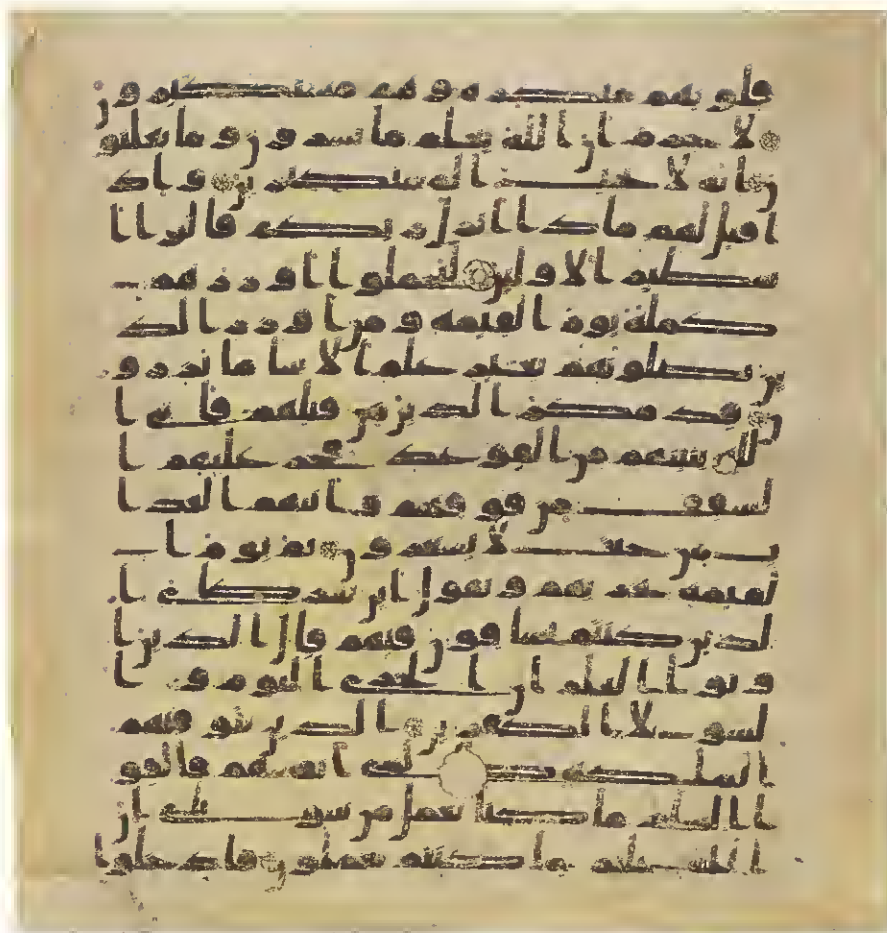 قلوبهم منكرة وهم مستكبرون
لا جرم ان الله يعلم ما يسرون وما يعلنو
ن انه لا يحب المستكبرين واذ
ا قيل لهم ماذا انزل ربكم قالوا ا
سطير الاولين ليحملوا اوزرهم
كملة يوم القيمة ومن اوزر الذ
ين يضلونهم بغير علم الا سا ما يزرو
ن قد مكر الذين من قبلهم فاتى ا
لله بنينهم من القوعد فخر عليهم ا
لسقف من فوقهم واتيهم العذا
ب من حيث لا يشعرون ثم يوم ا
لقيمة يخزيهم ويقول اين شركاى ا
لذين كنتم تشقون فيهم قال الذين ا
وتوا العلم ان الخزى اليوم وا
لسو على الكفرين الذين تتوفيهم
الملئكة ظلمى انفسهم فالقو
ا السلم ما كنا نعمل من سو بلى ان
الله عليم بما كنتم تعملون فادخلوا